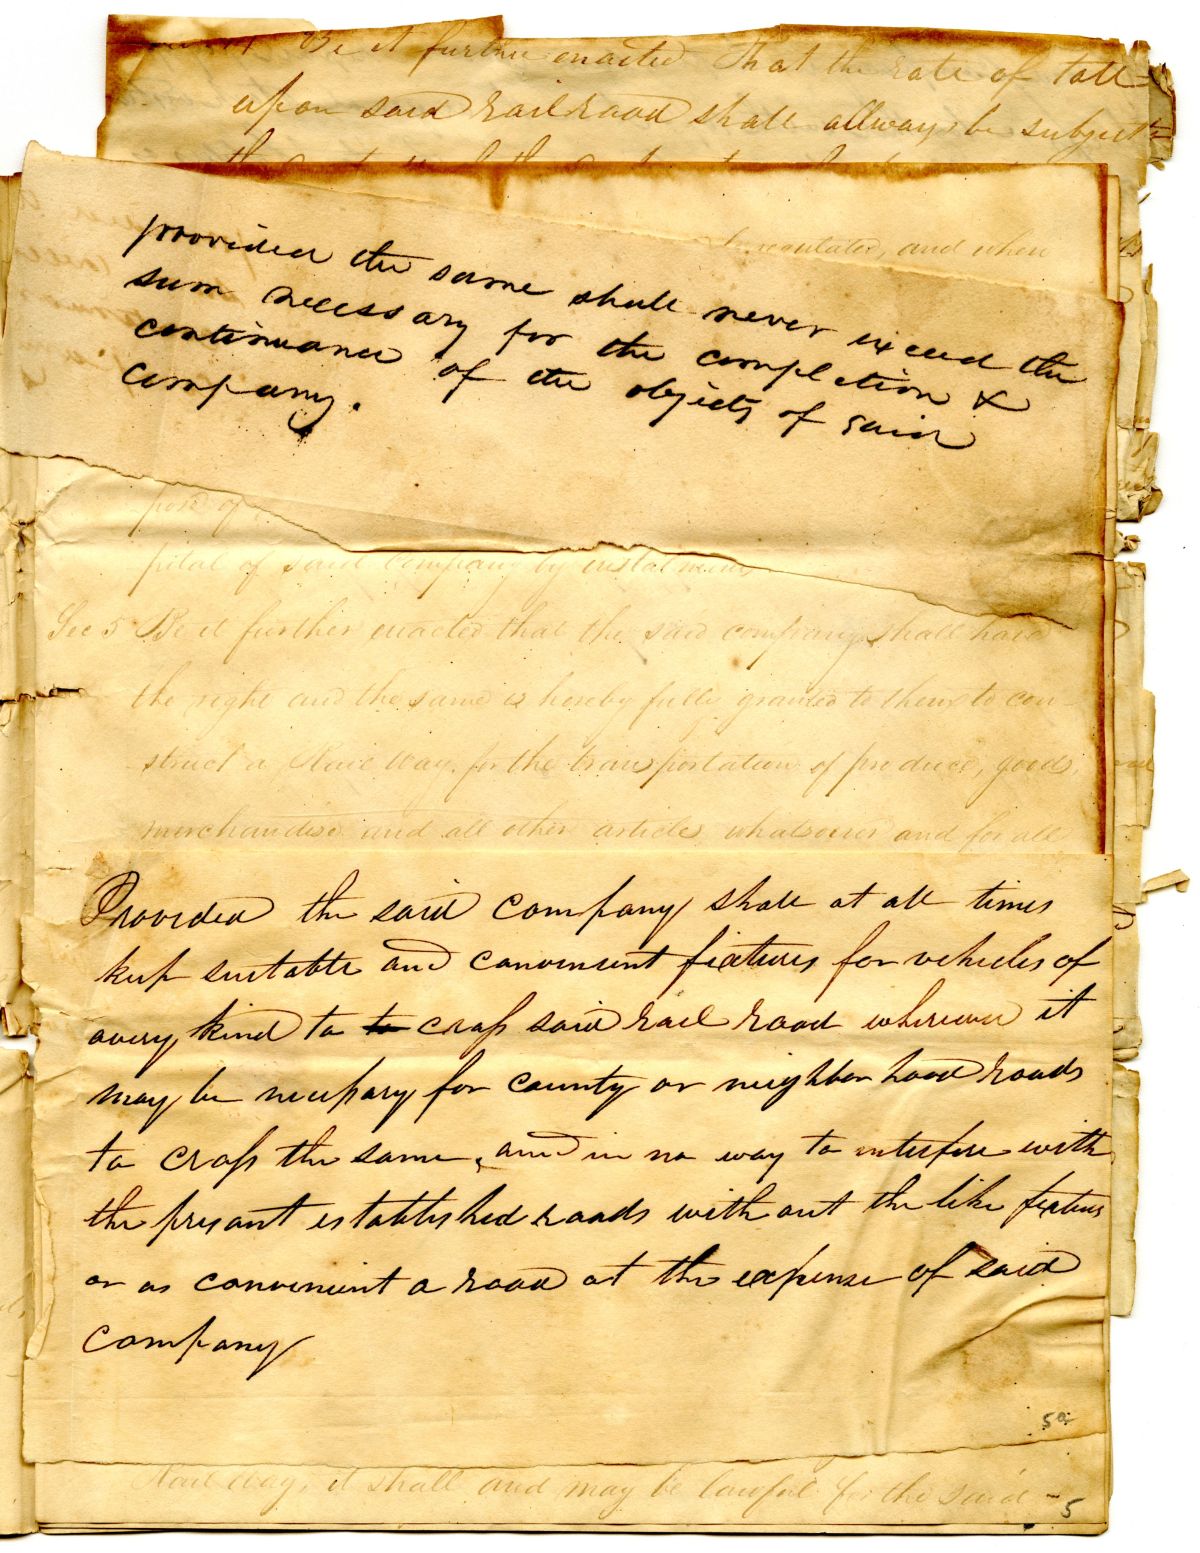 Be it further enacted That the rate of toll
upon said railroad shall allways be subject
regulated, and when
provided the same shall never exceed the
sum necessary for the completion &
continuance of the objects of said
company.
pital of said Company by instalments
Sec 5 Be it further enacted that the said company shall have
the right and the same is hereby fully granted to them to con-
struct a Rail Way for the transportation of produce, goods,
merchandise and all other articles whatsoever and for all
Provided the said company shall at all times
keep suitable and convenient fixtures for vehicles of
every kind to to cross said rail road wherever it
may be necessary for county or neighbor hood roads
to cross the same, and in no way to interfere with
the present established roads with out the like fixtures
or as convenient a road at the expense of said
company
5a
Rail Way, it shall and may be lawful for the said
5